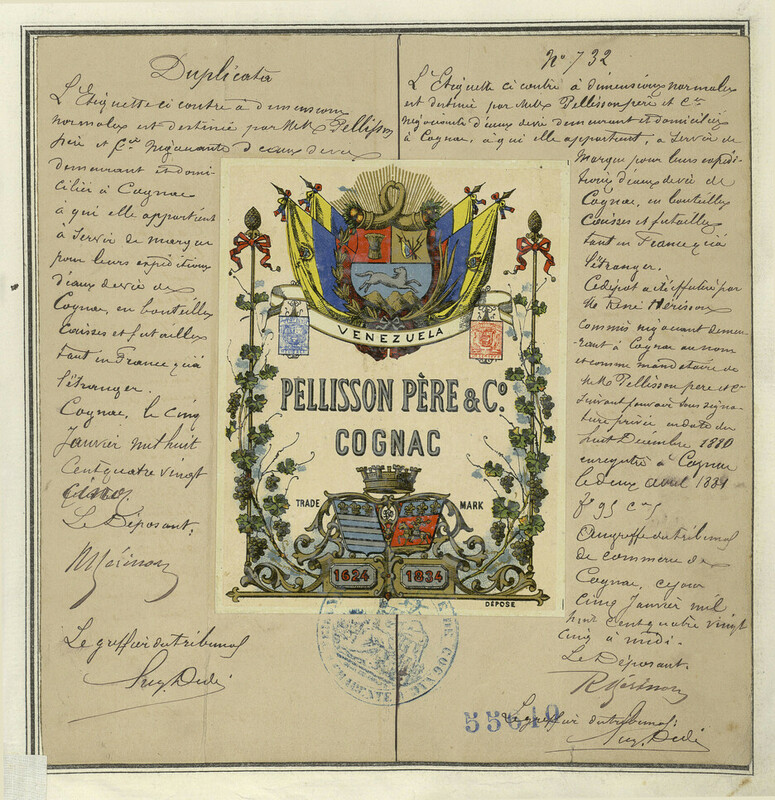 Duplicata
L'Etiquette ci contre à dimensions
normales est destinée par MM Pellisson
père et Cie négociants d'eaux de vie
demeurant et domi-
ciliés à Cognac
à qui elle appartient
à servir de marque
pour leurs expéditions
d'eaux de vie de
Cognac, en bouteilles
Caisses et futailles
tant en France qu'à
l'étranger.
Cognac, le cinq
Janvier mil huit
Cent quatre vingt
cinq.
Le Déposant:
Le greffier du tribunal
No 732
L'Etiquette ci contre à dimensions normales
est destinée par MM Pellisson père et Cie
négociants d'eaux de vie demeurant et domiciliés
à Cognac, à qui elle appartient, à servir de
Marque pour leurs expédi-
tions d'eaux de vie de
Cognac, en bouteilles
Caisses et futailles
tant en France qu'à
l'étranger.
Ce dépot a été effectué par
M. René Hérisson
commis négociant demeu-
rant à Cognac au nom
et comme mandataire de
MM Pellisson père et Cie
suivant pouvoir sous signa-
ture privée en date du
huit Décembre 1880
enregistré à Cognac
le deux avril 1881
fo 95 Cse 5
Au greffe du tribunal
de commerce de
Cognac, ce jour
cinq Janvier mil
huit cent quatre vingt
cinq à midi.
Le Déposant.
R Hérisson
Le greffier du tribunal:
55640
VENEZUELA
PELLISSON PÈRE & Co.
COGNAC
TRADE MARK
1624 1834
DÉPOSÉ